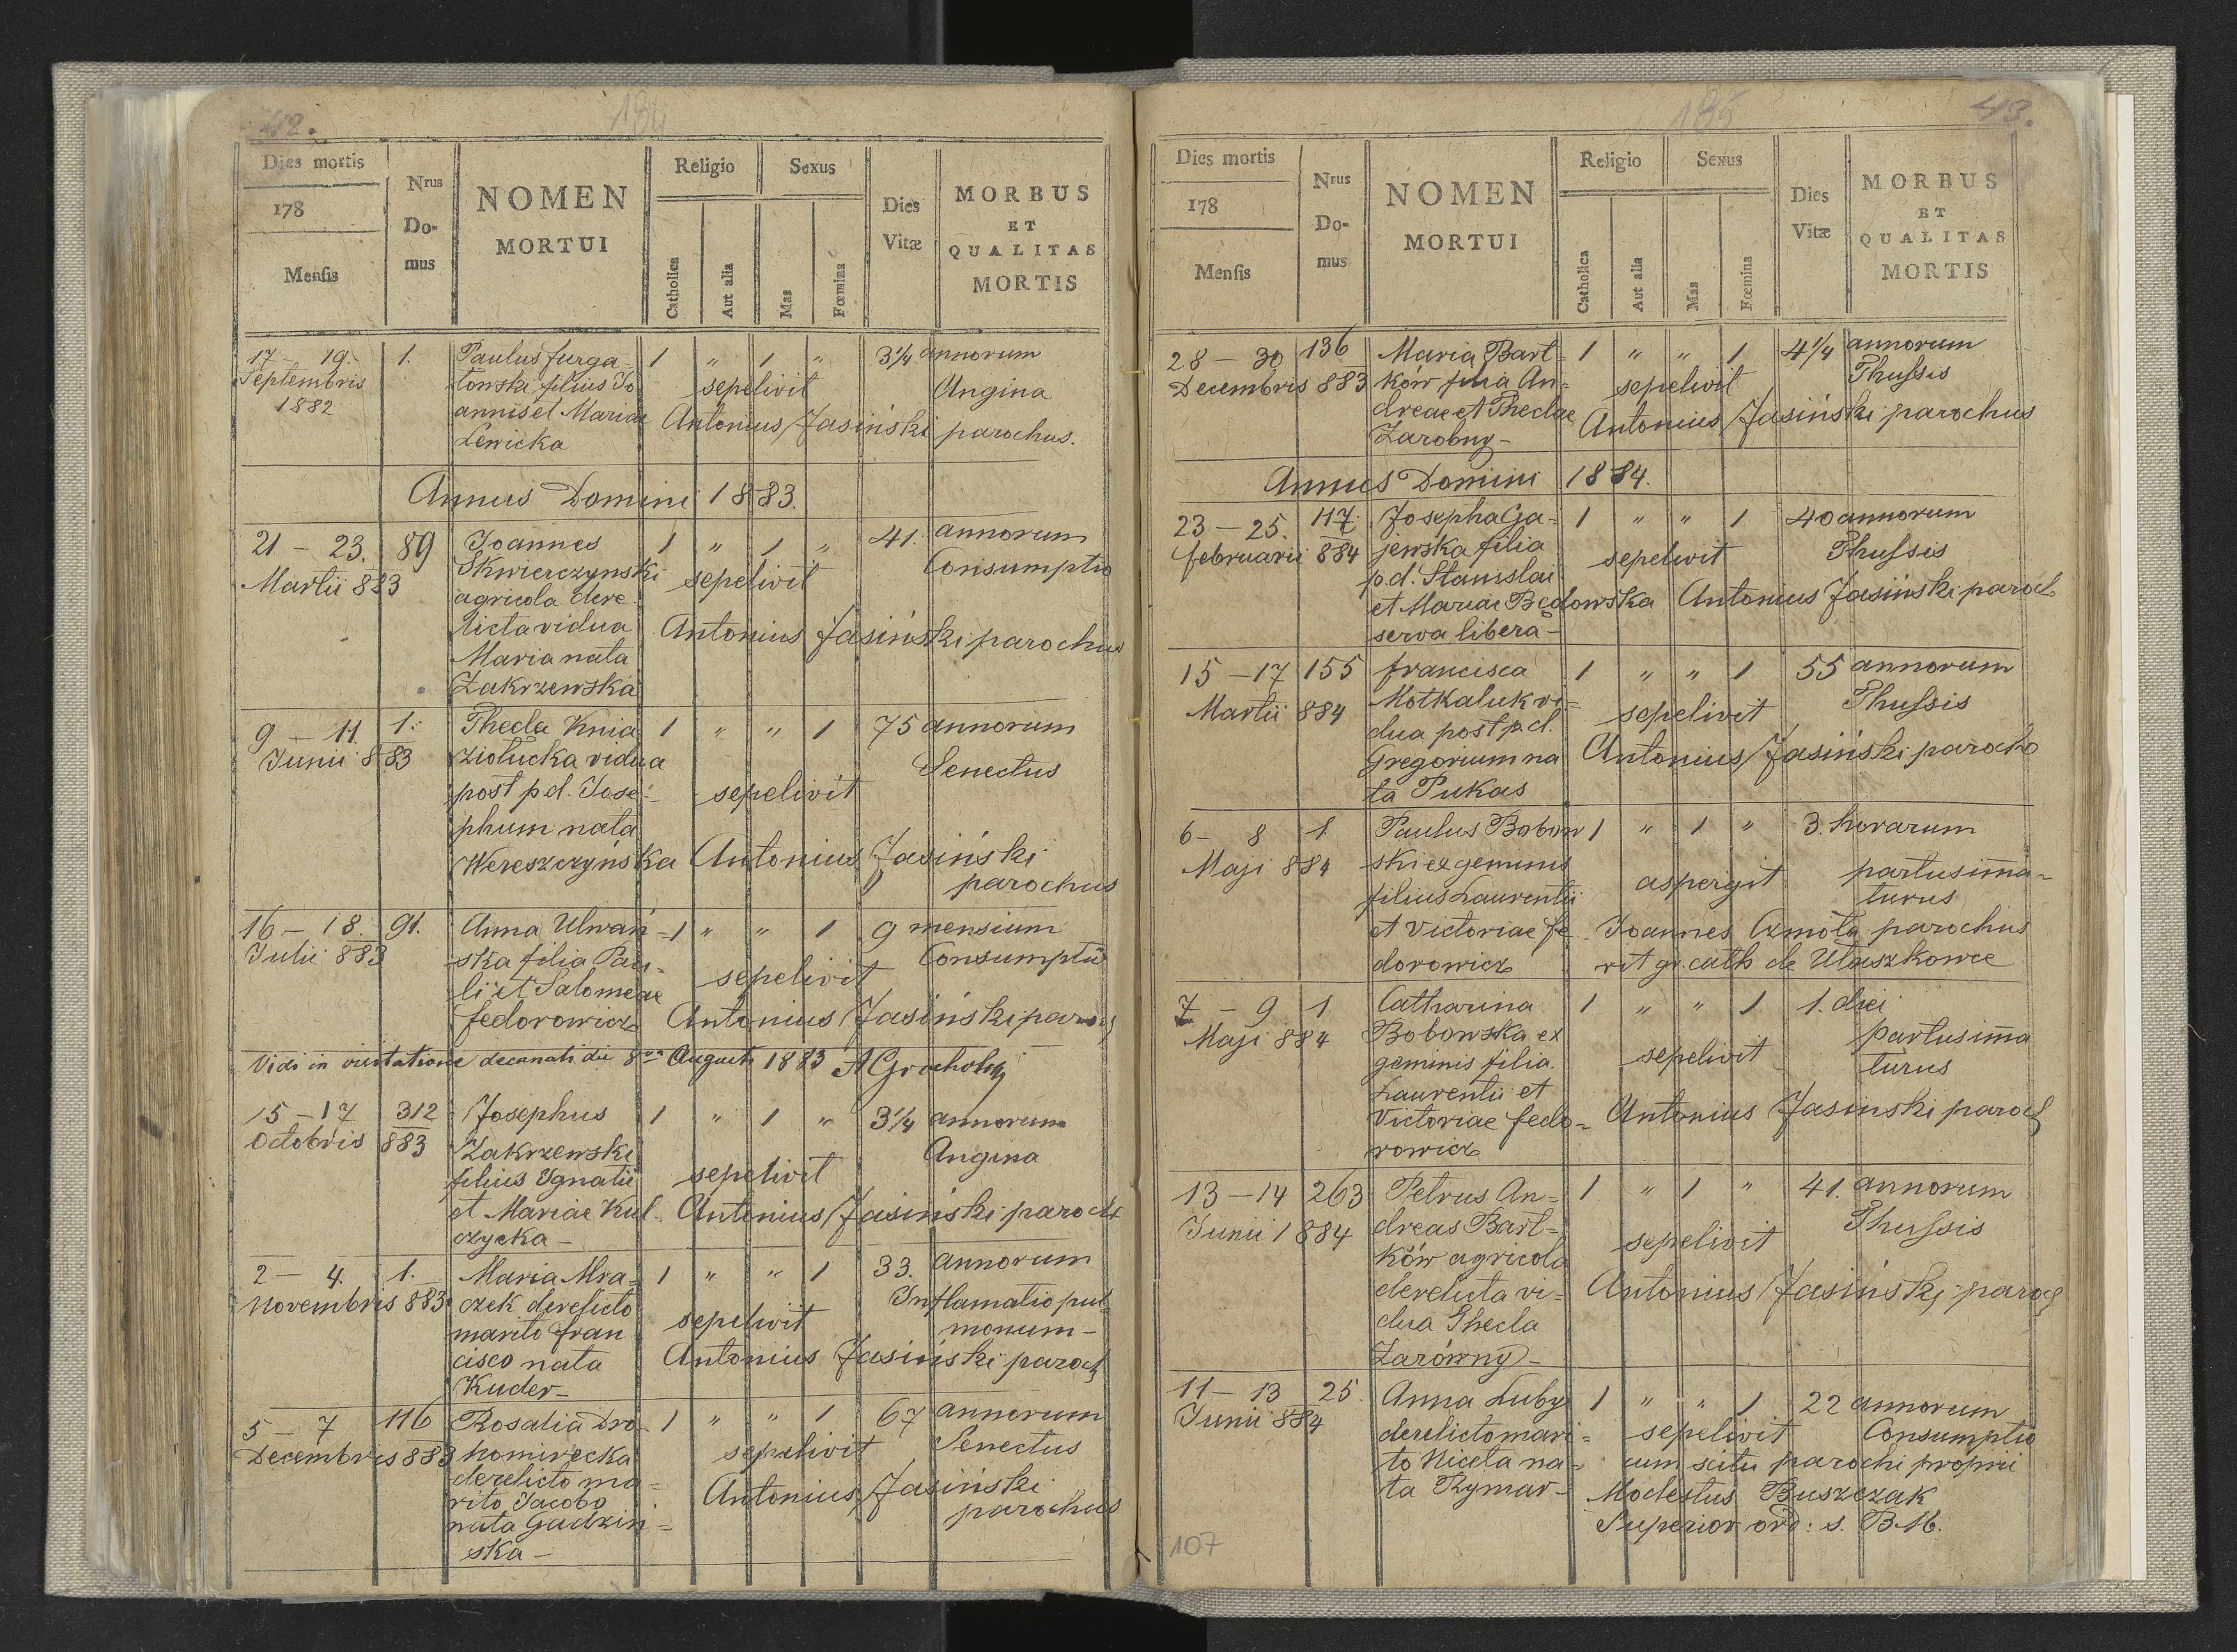 42.
184
Dies mortis
178
Mensis
Nrus
Do-
mus
NOMEN
MORTUI
Religio
Catholica
Aut alia
Sexus
Mas
Fœmina
Dies
Vitæ
MORBUS
ET
QUALITAS
MORTIS
17 - 19. 1. Paulus furga- 1 " 1 " 3 1/4 annorum
Septembris towski filius Jo sepelivit Angina
1882 annis et Mariae Antonius Jasiński parochus.
Lewicka
Annus Domini 1883.
21 - 23. 89 Joannes 1 " 1 " 41. annorum
Martii 883 Skwierczynski sepelivit Consumptio
agricola dere
licta vidua Antonius Jasiński parochus
Maria nata
Zakrzewska
9 - 11. 1. Thecla Knia 1 " " 1 75 annorum
Junii 883 ziolucka vidua Senectus
post p d. Jose- sepelivit
phum nata
Wereszczyńska Antonius Jasiński
parochus
16 - 18. 91. Anna Ulwań= 1 " " 1 9 mensium
Julii 883 ska filia Pau= sepelivit Consumptio
li et Salomeae
fedorowicz Antonius Jasiński paroch
Vidi in visitatione decanali die 8va Augusti 1883
15 - 17 312 Josephus 1 " 1 " 3 1/4 annorum
Octobris 883 Zakrzewski Angina
filius Ignatii sepelivit
et Mariae Kul- Antonius Jasiński paroch
czycka -
2 - 4. 1. Maria Mra= 1 " " 1 33. annorum
Novembris 883 czek derelicto sepelivit Inflamatio pul
marito fran monum -
cisco nata Antonius Jasiński paroch
Kuder -
5 - 7 116 Rosalia Dro 1 " " 1 67 annorum
Decembris 883 homirecka sepelivit Senectus
derelicto ma=
rito Jacobo Antonius Jasiński
nata Gadzin= parochus
ska -
185
43.
Dies mortis
178
Mensis
Nrus
Do-
mus
NOMEN
MORTUI
Religio
Catholica
Aut alia
Sexus
Mas
Fœmina
Dies
Vitæ
MORBUS
ET
QUALITAS
MORTIS
28 - 30 136 Maria Bart= 1 " " 1 4 1/4 annorum
Decembris 883 ków filia An= sepelivit Thussis
dreae et Theclae Antonius Jasiński parochus
Zarobny -
Annus Domini 1884.
23 - 25. 117. Josepha Ga= 1 " " 1 40 annorum
februarii 884 jewska filia sepelivit Thussis
p.d. Stanislai
et Mariae Bedowska Antonius Jasiński paroch
serva libera -
15 - 17 155 francisca 1 " " 1 55 annorum
Martii 884 Motkaluk vi= sepelivit Thussis
dua post p.d.
Gregorium na Antonius Jasiński paroch
ta Pukas
6 - 8 1 Paulus Bobow 1 " 1 " 3. horarum
Maji 884 ski ex geminis aspergit partus imma=
filius Laurentii turus
et Victoriae fe- Joannes Czmola parochus
dorowicz rit gr. cath de Ulaszkowce
7 - 9 1 Catharina 1 " " 1 1. diei
Maji 884 Bobowska ex partus imma
geminis filia. sepelivit turus
Laurentii et
Victoriae fedo= Antonius Jasinski paroch
rowicz
13 - 14 263 Petrus An= 1 " 1 " 41. annorum
Junii 1884 dreas Bart= sepelivit Thussis
ków agricola
derelicta vi= Antonius Jasiński paroch
dua Thecla
Zarówny -
11 - 13 25. Anna Luby 1 " " 1 22 annorum
Junii 884 derelicto mari= sepelivit Consumptio
to Niceta na= cum scitu parochi proprii
ta Rymar - Modestus Buszczak
Superior ord: s. B.M.
107